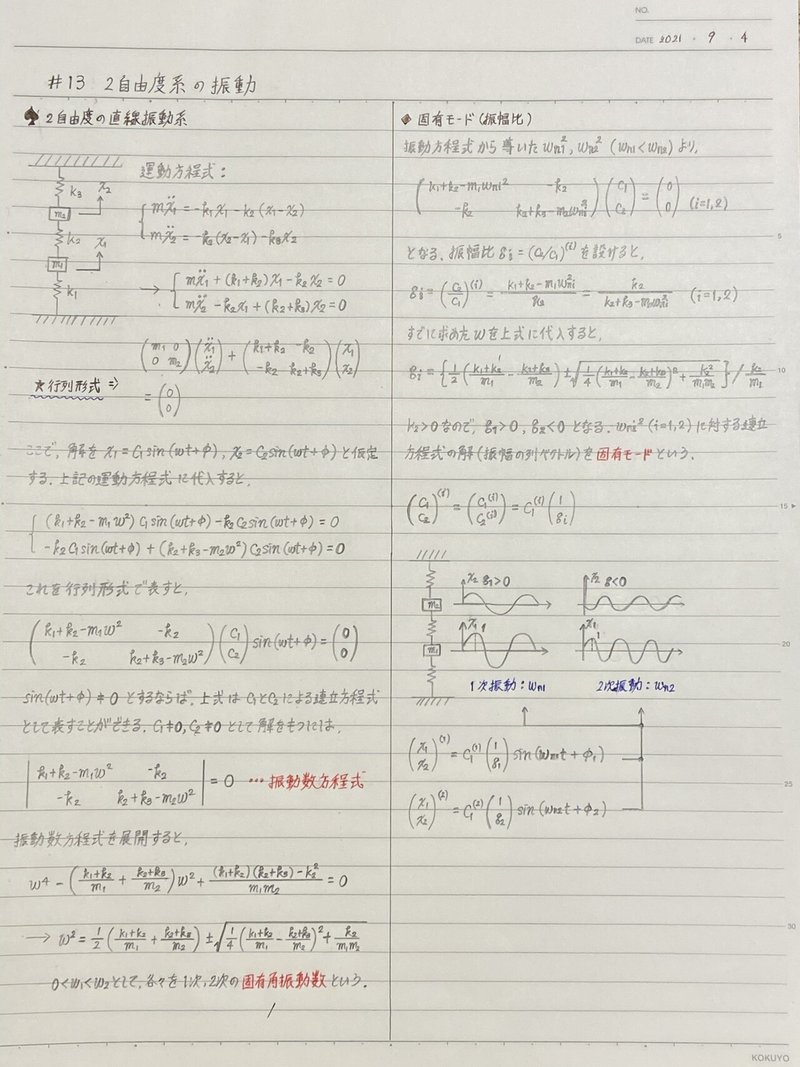 NO.
DATE 2021 ・ 9 ・ 4
#13 2自由度系の振動
♠ 2自由度の直線振動系
運動方程式:
k₃ x₂
m₂
k₂ x₁
m₁
k₁
{ mẍ₁ = -k₁x₁ - k₂(x₁-x₂)
mẍ₂ = -k₂(x₂-x₁) - k₃x₂
→ { mẍ₁ + (k₁+k₂)x₁ - k₂x₂ = 0
mẍ₂ - k₂x₁ + (k₂+k₃)x₂ = 0
(m₁ 0 / 0 m₂)(ẍ₁ / ẍ₂) + (k₁+k₂ -k₂ / -k₂ k₂+k₃)(x₁ / x₂)
☆行列形式 ⇒
= (0 / 0)
ここで, 解を x₁ = C₁sin(ωt+φ), x₂ = C₂sin(ωt+φ) と仮定
する. 上記の運動方程式に代入すると,
{ (k₁+k₂-m₁ω²) C₁sin(ωt+φ) - k₂C₂sin(ωt+φ) = 0
-k₂C₁sin(ωt+φ) + (k₂+k₃-m₂ω²) C₂sin(ωt+φ) = 0
これを行列形式で表すと,
(k₁+k₂-m₁ω² -k₂ / -k₂ k₂+k₃-m₂ω²)(C₁ / C₂) sin(ωt+φ) = (0 / 0)
sin(ωt+φ) ≠ 0 とするならば, 上式は C₁とC₂による連立方程式
として表すことができる. C₁≠0, C₂≠0 として解をもつには,
|k₁+k₂-m₁ω² -k₂ / -k₂ k₂+k₃-m₂ω²| = 0 … 振動数方程式
振動数方程式を展開すると,
ω⁴ - ((k₁+k₂)/m₁ + (k₂+k₃)/m₂) ω² + ((k₁+k₂)(k₂+k₃)-k₂²)/(m₁m₂) = 0
→ ω² = 1/2 ((k₁+k₂)/m₁ + (k₂+k₃)/m₂) ± √(1/4 ((k₁+k₂)/m₁ - (k₂+k₃)/m₂)² + k₂/(m₁m₂))
0<ω₁<ω₂として, 各々を1次, 2次の固有角振動数という.
◆ 固有モード(振幅比)
振動方程式から導いた ωn1², ωn2² (ωn1<ωn2) より,
(k₁+k₂-m₁ωni² -k₂ / -k₂ k₂+k₃-m₂ωni²)(C₁ / C₂) = (0 / 0) (i=1,2)
となる. 振幅比 gi = (C₂/C₁)⁽ⁱ⁾ を設けると,
gi = (C₂/C₁)⁽ⁱ⁾ = (k₁+k₂-m₁ωni²)/k₂ = k₂/(k₂+k₃-m₂ωni²) (i=1,2)
すでに求めたωを上式に代入すると,
gi = {1/2 ((k₁+k₂)/m₁ - (k₂+k₃)/m₂) ± √(1/4 ((k₁+k₂)/m₁ - (k₂+k₃)/m₂)² + k₂²/(m₁m₂))} / k₂/m₁
k₂>0なので, g₁>0, g₂<0 となる. ωni² (i=1,2) に対する連立
方程式の解(振幅の列ベクトル)を固有モードという.
(C₁ / C₂)⁽ⁱ⁾ = (C₁⁽ⁱ⁾ / C₂⁽ⁱ⁾) = C₁⁽ⁱ⁾ (1 / gi)
x₂ g₁>0 x₂ g<0
m₂
x₁ 1 x₁ 1
m₁
1次振動: ωn1 2次振動: ωn2
(x₁ / x₂)⁽¹⁾ = C₁⁽¹⁾ (1 / g₁) sin(ωn1t + φ₁)
(x₁ / x₂)⁽²⁾ = C₁⁽²⁾ (1 / g₂) sin(ωn2t + φ₂)
5
10
15
20
25
30
KOKUYO